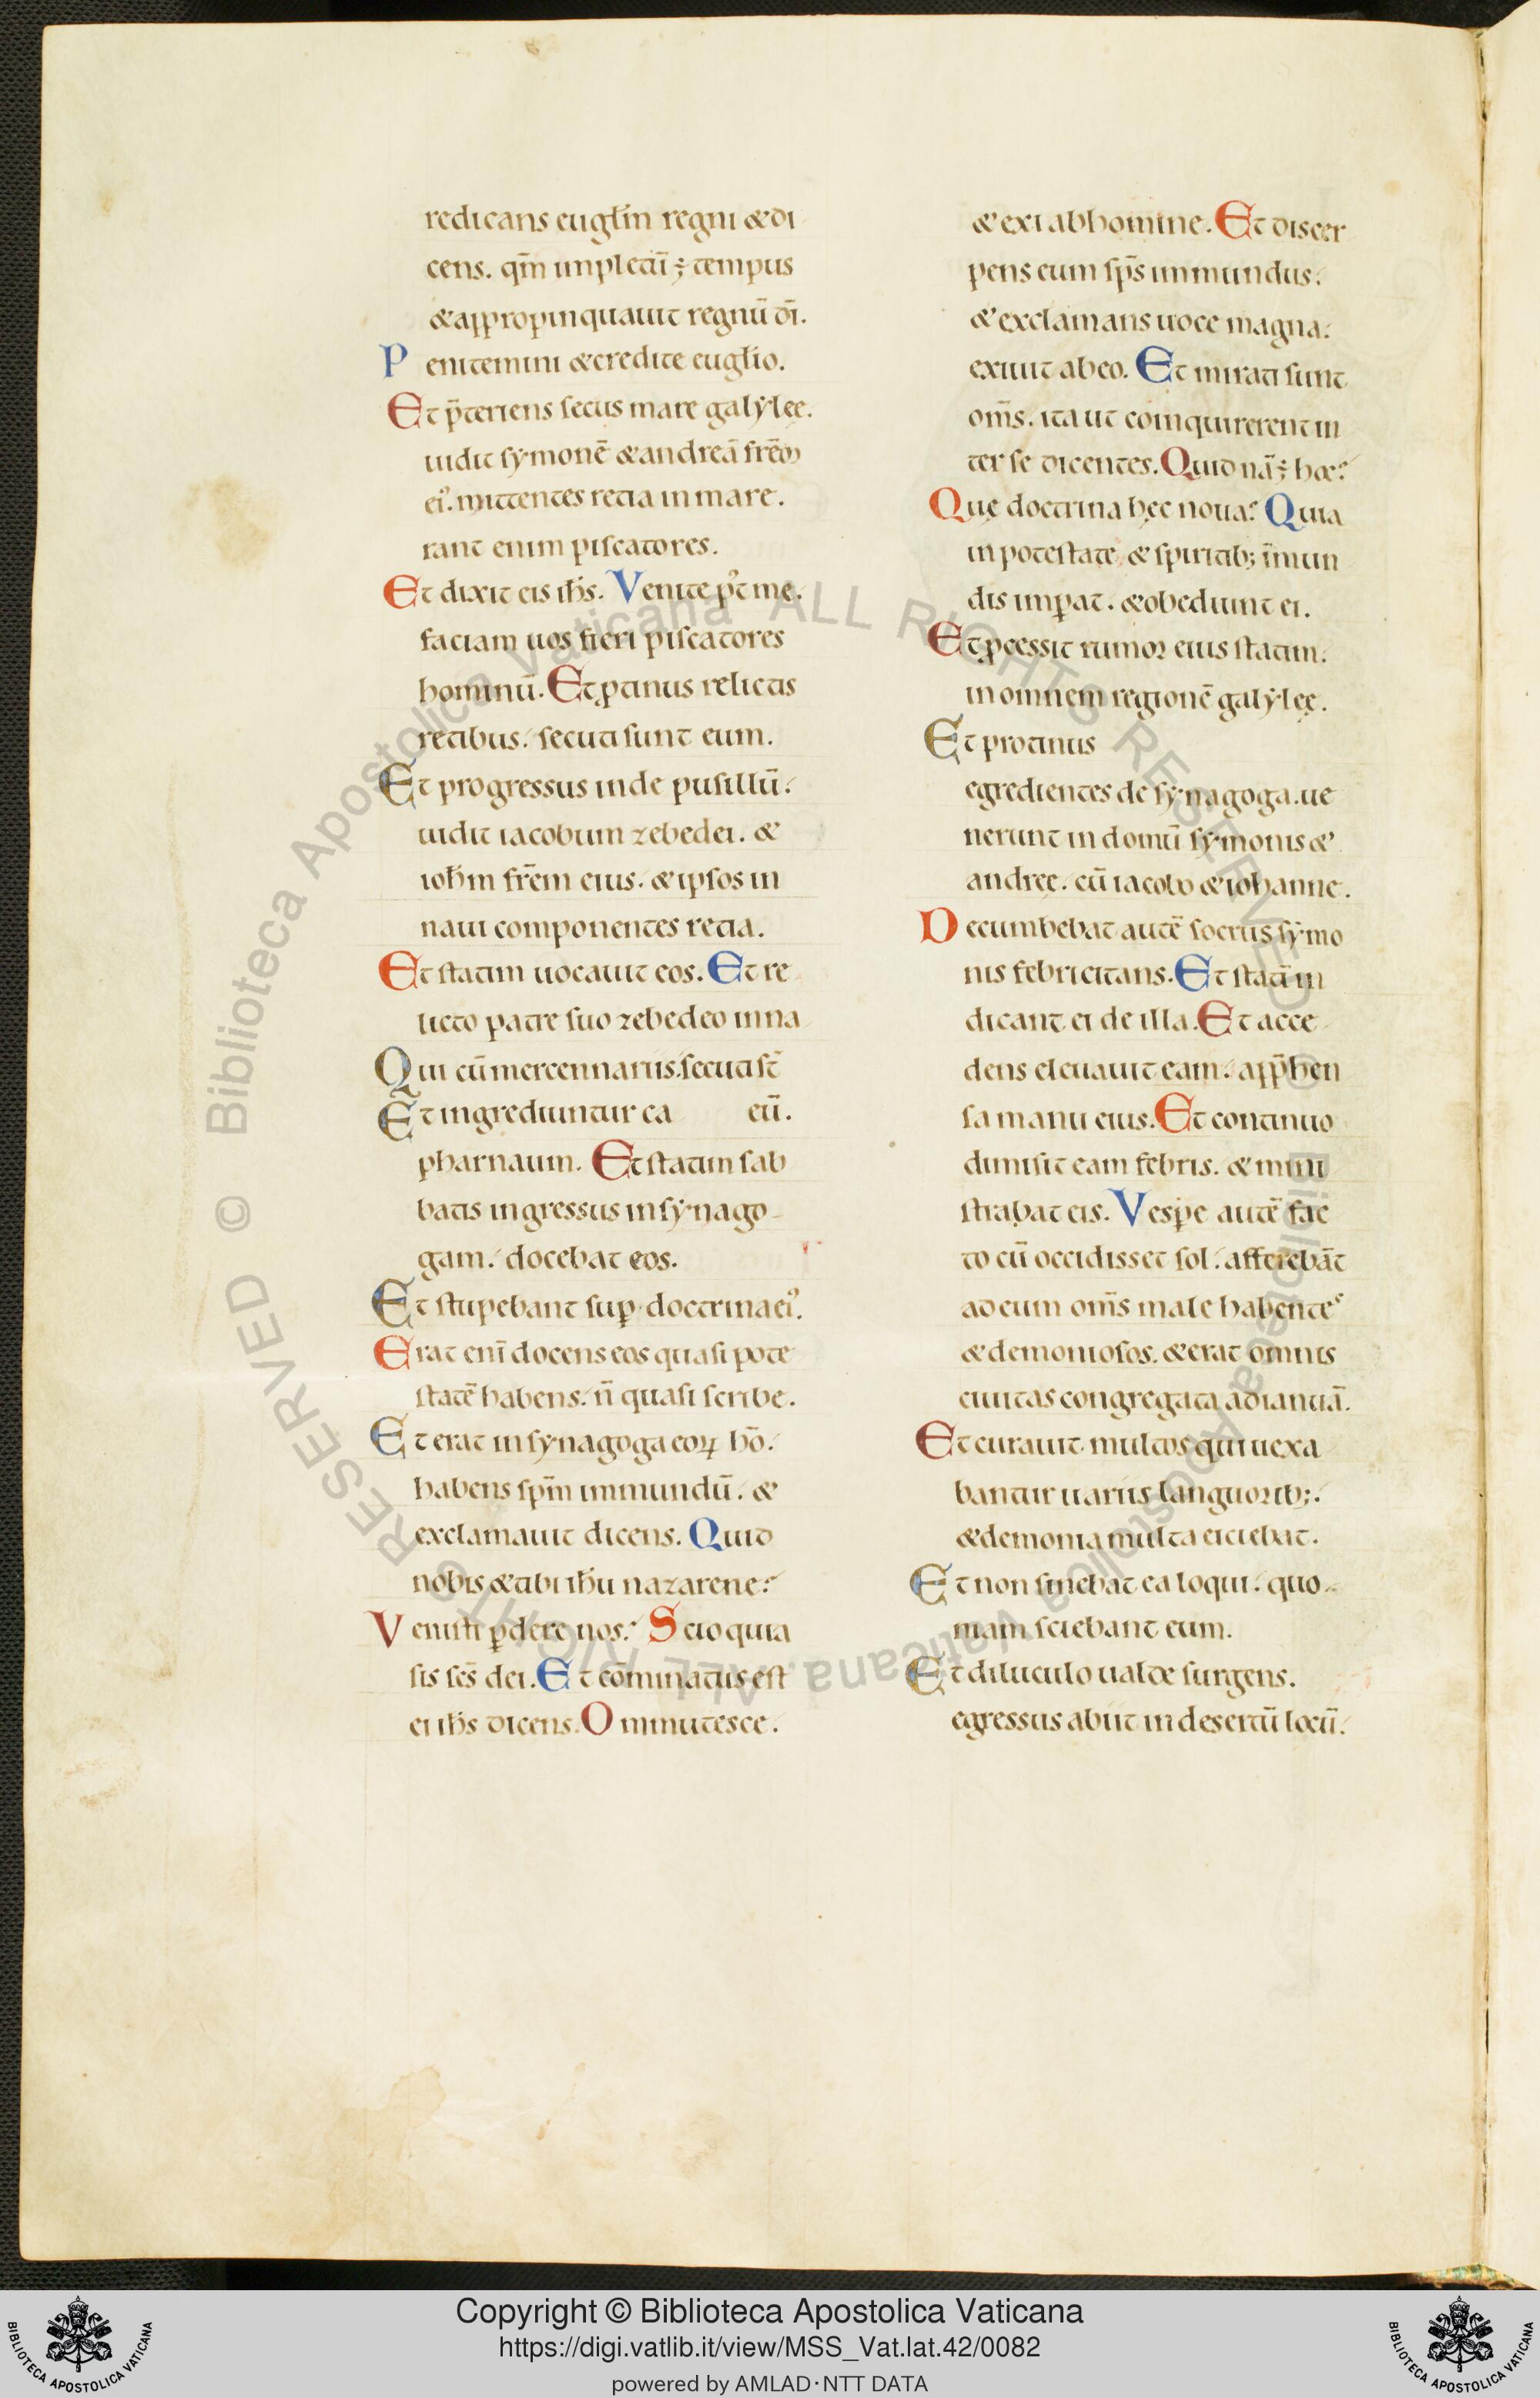 redicans eugl̄m regni &di
cens. qm̄ impletū ē; tempus
&appropinquauit regnū dī.
Penitemini &credite euglīo.
Et p̄teriens secus mare galẏlęę.
uidit sẏmonē &andreā frēm
ei᾽. mittentes retia in mare.
rant enim piscatores.
Et dixit eis ih̄s. Venite p᾽t me.
faciam uos fieri piscatores
hominū. Et ꝓtinus relictis
retibus. secuti sunt eum.
Et progressus inde pusillū.
uidit iacobum zebedei. &
ioh̄m frēm eius. & ipsos in
naui componentes retia.
Et statim uocauit eos. Et re
licto patre suo zebedeo inna
Qui cū mercennariis. secuti st̄
Et ingrediuntur ca eū.
pharnaum. Et statim sab
batis ingressus in sẏnago
gam. docebat eos.
Et stupebant sup̱ doctrina ei᾽.
Erat enī docens eos quasi pote
statē habens. n̄ quasi scribe.
Et erat in sẏnagoga eoꝝ hō.
habens spm̄ immundū. &
exclamauit dicens. Quid
nobis & tibi ih̄u nazarene?
Venisti ꝑdere nos? Scio quia
sis sc̄s dei. Et cōminatus est
ei ih̄s dicens. Ommutesce.
& exi abhomine. Et discer
pens eum sp̄s immundus.
& exclamans uoce magna.
exiuit abeo. Et mirati sunt
om̄s. ita ut conquirerent in
ter se dicentes. Quid nā ē; hoc?
Quę doctrina hęc noua? Quia
in potestate & spiritib; īmun
dis imꝑat. &obediunt ei.
Et ꝓcessit rumor eius statim.
in omnem regionē galẏlęę.
Et protinus
egredientes de sẏnagoga. ue
nerunt in domū sẏmonis &
andreę. cū iacobo & iohanne.
Decumbebat autē socrus sẏmo
nis febricitans. Et statī in
dicant ei de illa. Et acce
dens eleuauit eam. app̄hen
sa manu eius. Et continuo
dimisit eam febris. & mini
strabat eis. Vesp̱e autē fac
to cū occidisset sol. afferebāt
ad eum om̄s male habentes
&demoniosos. &erat omnis
ciuitas congregata adianuā.
Et curauit multos qui uexa
bantur uariis languorib;.
&demonia multa eiciebat.
Et non sinebat ea loqui. quo
niam sciebant eum.
Et diluculo ualde surgens.
egressus abiit in desertū locū.
Copyright © Biblioteca Apostolica Vaticana
https://digi.vatlib.it/view/MSS_Vat.lat.42/0082
powered by AMLAD·NTT DATA
BIBLIOTECA APOSTOLICA VATICANA
BIBLIOTECA APOSTOLICA VATICANA
© Biblioteca Apostolica Vaticana ALL RIGHTS RESERVED © Biblioteca Apostolica Vaticana. ALL RIGHTS RESERVED